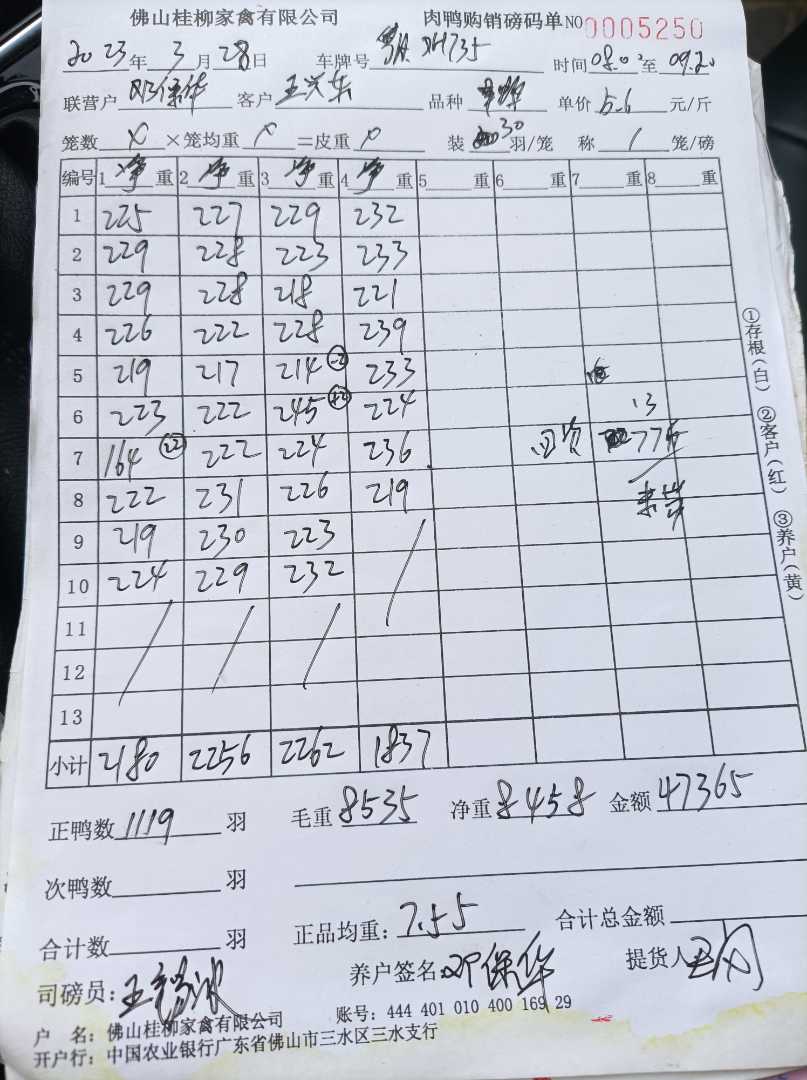 佛山桂柳家禽有限公司 肉鸭购销磅码单 NO 0005250
2023年3月28日 车牌号 时间 08.0 至 09.20
联营户 邓保华 客户 王兴东 品种 单价 5.6 元/斤
笼数 × 笼均重 =皮重 装 30 羽/笼 称 1 笼/磅
编号 1 净 重 2 净 重 3 净 重 4 净 重 5 重 6 重 7 重 8 重
1 225 227 229 232
2 229 228 223 233
3 229 228 218 221
4 226 222 228 239
5 219 217 214 -2 233
6 223 222 245 +2 224
7 164 22 222 224 236
8 222 231 226 219
9 219 230 223
10 224 229 232
11
12
13
小计 2180 2256 2262 1837
13
775
正鸭数 1119 羽 毛重 8535 净重 8458 金额 47365
次鸭数 羽
合计数 羽 正品均重: 7.55 合计总金额
司磅员: 养户签名: 邓保华 提货人
户 名: 佛山桂柳家禽有限公司 账号: 444 401 010 400 169 29
开户行: 中国农业银行广东省佛山市三水区三水支行
①存根(白) ②客户(红) ③养户(黄)